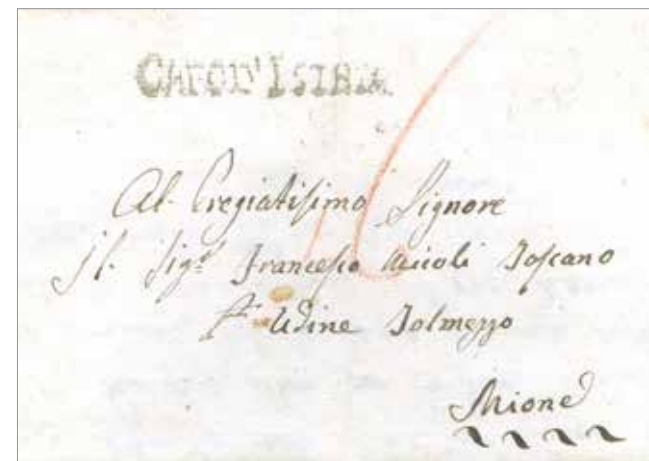 CAPOD'ISTRIA
16
Al Pregiatissimo Signore
Il Sigr Francesco Micoli Toscano
Pr Udine Tolmezzo
Mione